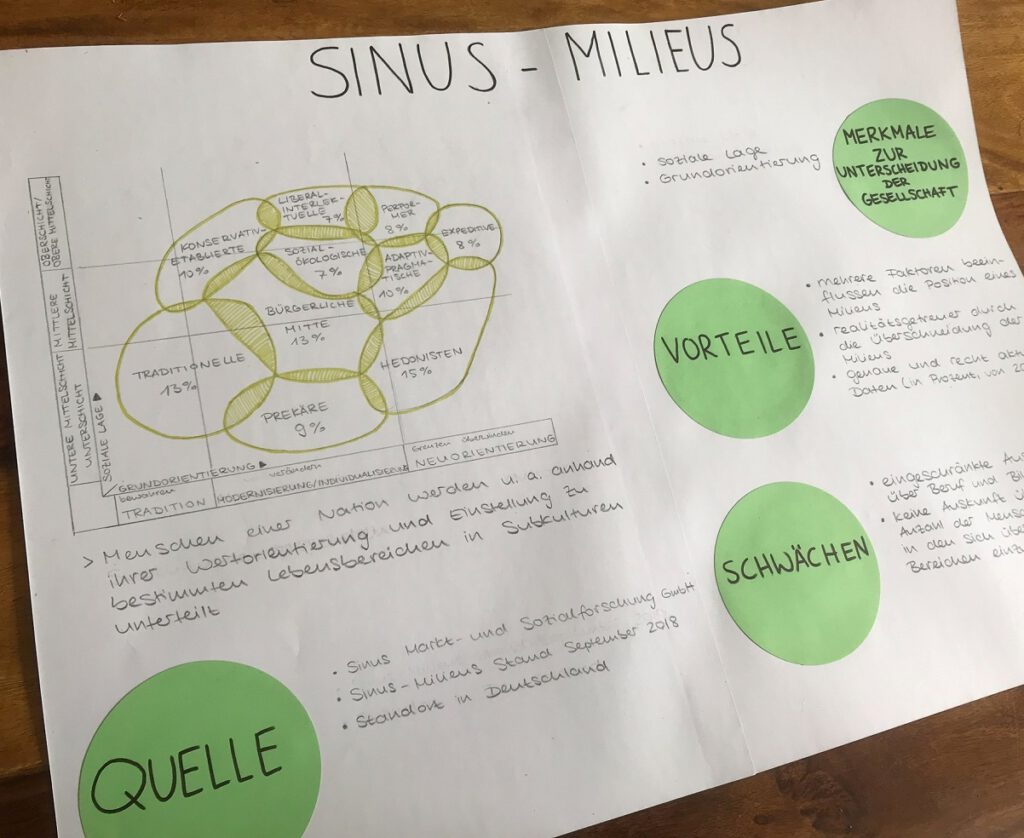 SINUS - MILIEUS
OBERSCHICHT/
OBERE MITTELSCHICHT
MITTLERE
MITTELSCHICHT
UNTERE MITTELSCHICHT
UNTERSCHICHT
SOZIALE LAGE ▶
LIBERAL-
INTERLEK-
TUELLE 7%
PERFOR-
MER
8%
EXPEDITIVE
8%
KONSERVATIV-
ETABLIERTE
10%
SOZIAL-
ÖKOLOGISCHE
7%
ADAPTIV-
PRAGMA-
TISCHE
10%
BÜRGERLICHE
MITTE
13%
TRADITIONELLE
13%
HEDONISTEN
15%
PREKÄRE
9%
GRUNDORIENTIERUNG ▶
bewahren
TRADITION
verändern
MODERNISIERUNG/INDIVIDUALISIERUNG
Grenzen überwinden
NEUORIENTIERUNG
> Menschen einer Nation werden u. a. anhand
ihrer Wertorientierung und Einstellung zu
bestimmten Lebensbereichen in Subkulturen
unterteilt
QUELLE
• Sinus Markt- und Sozialforschung GmbH
• Sinus-Milieus Stand September 2018
• Standort in Deutschland
MERKMALE
ZUR
UNTERSCHEIDUNG
DER
GESELLSCHAFT
• soziale Lage
• Grundorientierung
VORTEILE
• mehrere Faktoren beein-
flussen die Position eines
Milieus
• realitätsgetreuer durch
die Überschneidung der
Milieus
• genaue und recht
Daten (in Prozent, von
SCHWÄCHEN
• eingeschränkte
über Beruf und
• keine Auskunft
Anzahl der
in den sich
Bereichen